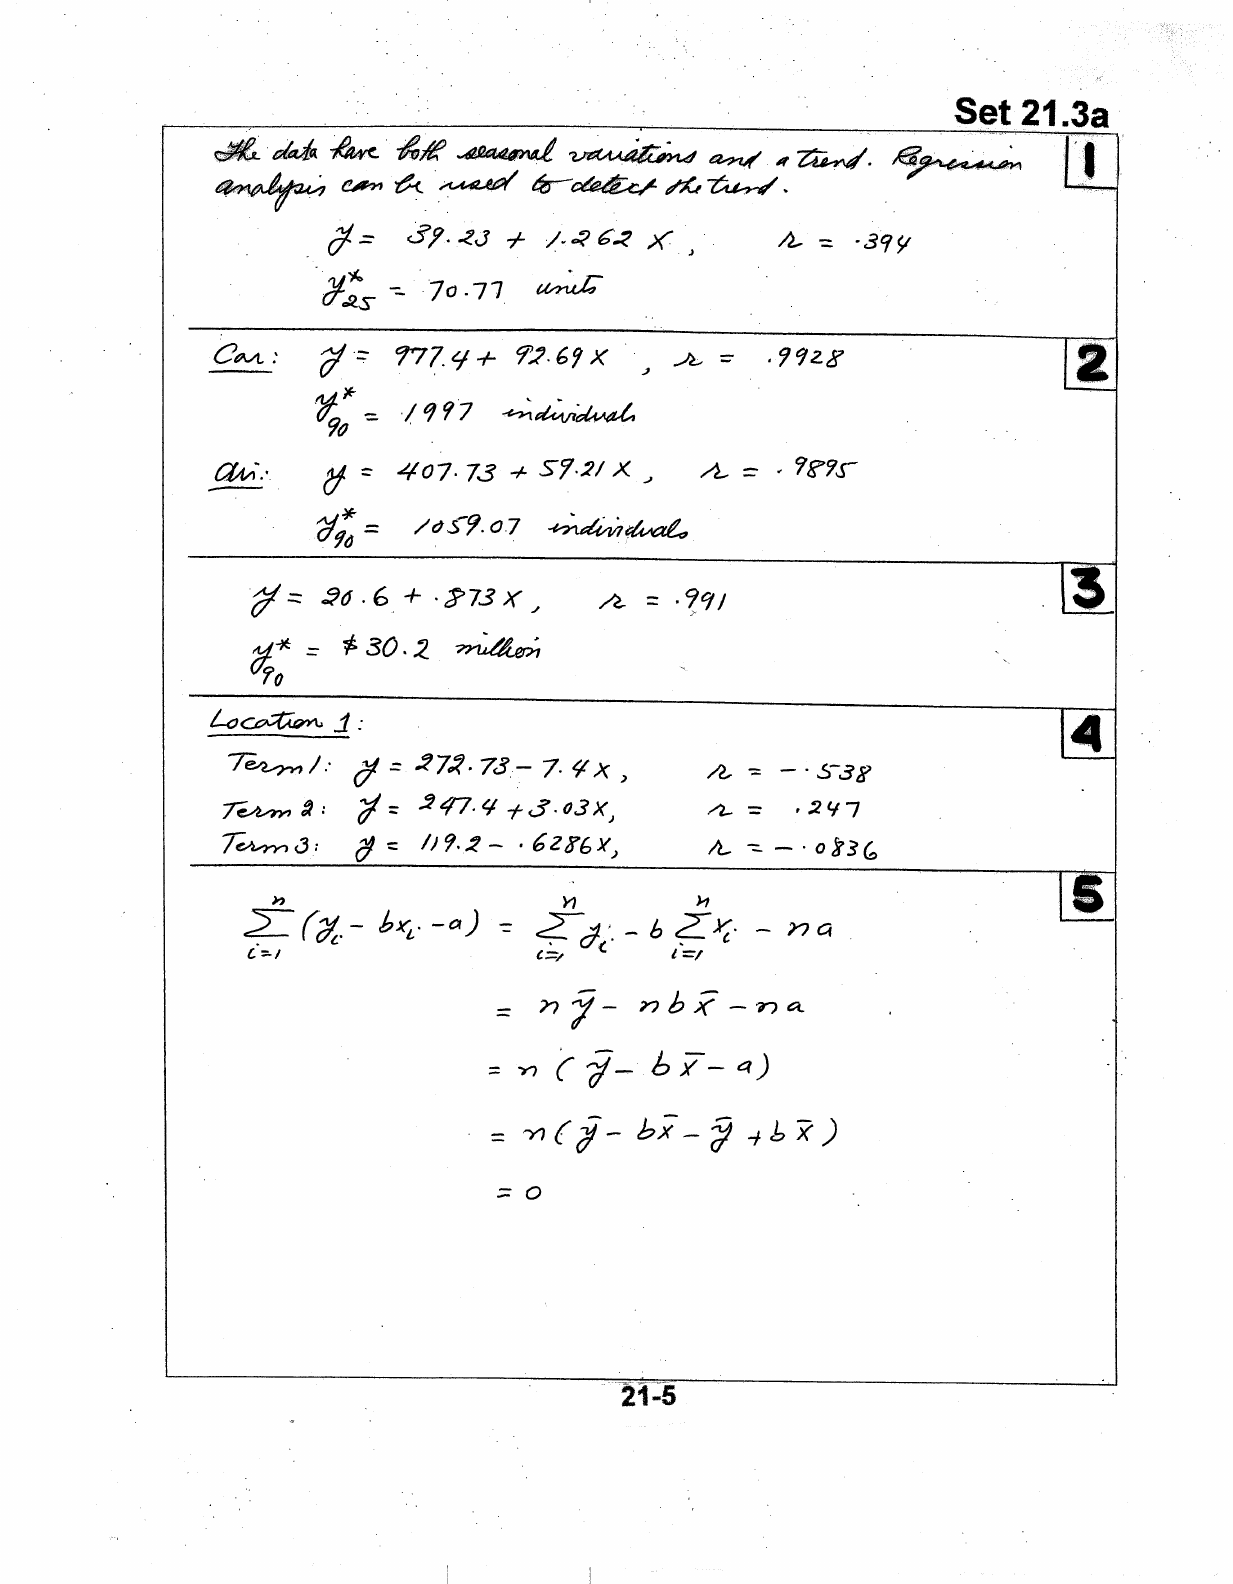 Set 21.3a
The data have both seasonal variations and a trend. Regression
1
analysis can be used to detect the trend.
y = 39.23 + 1.262 x, r = .394
y*25 = 70.77 units
Car: y = 977.4 + 92.69 x, r = .9928
2
y*90 = 1997 individuals
Air: y = 407.73 + 59.21 x, r = .9895
y*90 = 1059.07 individuals
y = 20.6 + .873 x, r = .991
3
y*90 = $30.2 million
Location 1:
4
Term 1: y = 272.73 - 7.4 x, r = -.538
Term 2: y = 247.4 + 3.03 x, r = .247
Term 3: y = 119.2 - .6286 x, r = -.0836
5
n∑i=1 (yi - bxi - a) = n∑i=1 yi - b n∑i=1 xi - na
= nȳ - nbx̄ - na
= n (ȳ - bx̄ - a)
= n (ȳ - bx̄ - ȳ + bx̄)
= 0
21-5